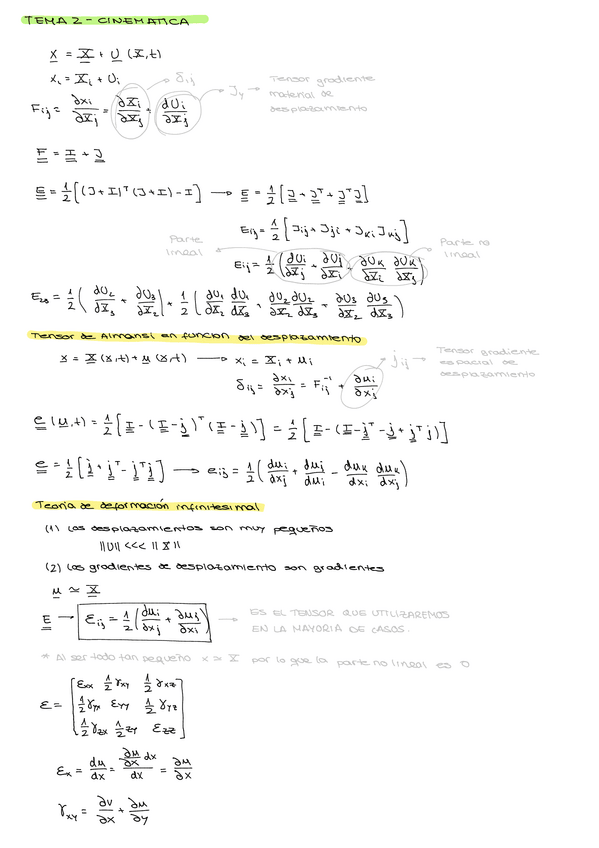 TEMA 2 - CINEMATICA
x = X + U (X,t)
xᵢ = Xᵢ + Uᵢ
δᵢⱼ
Fᵢⱼ = ∂xᵢ/∂Xⱼ = ∂Xᵢ/∂Xⱼ + dUᵢ/∂Xⱼ → Tensor gradiente material de desplazamiento
F = I + J
E = 1/2 [(J + I)ᵀ (J + I) - I] → E = 1/2 [J + Jᵀ + JᵀJ]
Eᵢⱼ = 1/2 [Jᵢⱼ + Jⱼᵢ + Jₖᵢ Jₖⱼ]
Parte lineal
Parte no lineal
Eᵢⱼ = 1/2 (dUᵢ/∂Xⱼ + ∂Uⱼ/∂Xᵢ + ∂Uₖ/∂Xᵢ ∂Uₖ/∂Xⱼ)
E₂₃ = 1/2 (∂U₂/∂X₃ + ∂U₃/∂X₂) + 1/2 (∂U₁/∂X₂ dU₁/dX₃ + ∂U₂/∂X₂ ∂U₂/dX₃ + ∂U₃/∂X₂ ∂U₃/∂X₃)
Tensor de Almansi en función del desplazamiento
x = X (x,t) + u (x,t) → xᵢ = Xᵢ + uᵢ
jᵢⱼ → Tensor gradiente espacial de desplazamiento
δᵢⱼ = ∂xᵢ/∂xⱼ = Fᵢⱼ⁻¹ + ∂uᵢ/∂xⱼ
e (u,t) = 1/2 [I - (I - j)ᵀ (I - j)] = 1/2 [I - (I - jᵀ - j + jᵀj)]
e = 1/2 [j + jᵀ - jᵀj] → eᵢⱼ = 1/2 (duᵢ/dxⱼ + duⱼ/duᵢ - duₖ/dxᵢ duₖ/dxⱼ)
Teoría de deformación infinitesimal
(1) Los desplazamientos son muy pequeños
||U|| <<< ||X||
(2) Los gradientes de desplazamiento son gradientes
u ≃ X
E → εᵢⱼ = 1/2 (duᵢ/∂xⱼ + ∂uⱼ/∂xᵢ) → ES EL TENSOR QUE UTILIZAREMOS
EN LA MAYORIA DE CASOS.
* Al ser todo tan pequeño x ≃ X por lo que la parte no lineal es 0
ε = [εxx 1/2 γxy 1/2 γxz
1/2 γyx εyy 1/2 γyz
1/2 γzx 1/2 zy εzz]
εx = du/dx = (∂u/∂x dx)/dx = ∂u/∂x
γxy = ∂v/∂x + ∂u/∂y